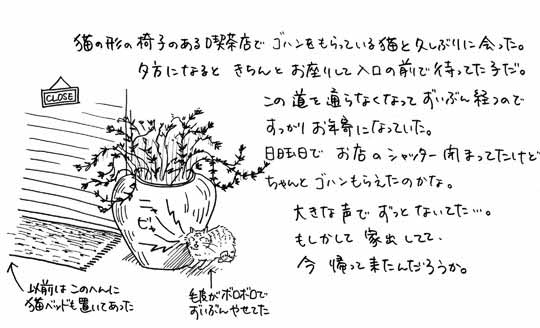 猫の形の椅子のある喫茶店でゴハンをもらっている猫と久しぶりに会った。
夕方になると きちんと お座りして入口の前で待ってた子だ。
この道を通らなくなってずいぶん経つので
すっかりお年寄になっていた。
日曜日で お店のシャッター閉まってたけど
ちゃんとゴハンもらえたのかな。
大きな声で ずっとないてた…。
もしかして 家出してて、
今 帰って来たんだろうか。
CLOSE
ビャー
以前はこのへんに
猫ベッドも置いてあった
毛皮がボロボロで
ずいぶんやせてた